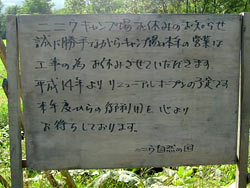 ニニウキャンプ場お休みのお知らせ
誠に勝手ながらキャンプ場の本年の営業は
工事の為お休みさせていただきます
平成14年よりリニューアルオープンの予定です
来年度からの御利用を心より
お待ちしております。
ニニウ自然の国